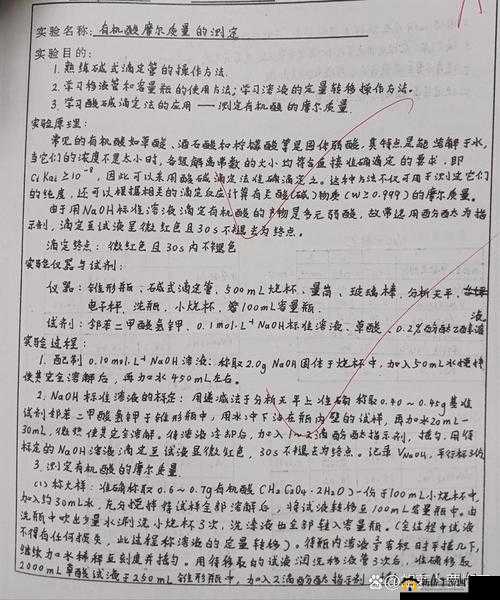 实验名称: 有机酸摩尔质量的测定
实验目的:
1. 熟练碱式滴定管的操作方法.
2. 学习移液管和容量瓶的使用方法; 学习溶液的定量转移操作方法。
3. 学习酸碱滴定法的应用——测定有机酸的摩尔质量.
实验原理:
常见的有机酸如草酸、酒石酸和柠檬酸等是固体弱酸, 其特点是能溶解于水,
当它们的浓度不是太小时, 各级解离常数的大小均符合直接准确滴定的要求, 即
CiKai≥10⁻⁸, 因此可以采用酸碱滴定法准确滴定之。这种方法不仅可用于测定它们
的纯度, 还可以根据相关的滴定反应计算有关酸(碱)物质(w≥0.999)的摩尔质量。
由于用NaOH标准溶液滴定有机酸的产物是多元弱酸, 故常选用酚酞为指
示剂, 滴定至试液呈微红色且30s不褪去为终点。
滴定终点: 微红色且30s内不褪色
实验仪器与试剂:
仪器: 锥形瓶、碱式滴定管、500mL烧杯、量筒、玻璃棒、分析天平、
电子秤、洗瓶、小烧杯、100mL容量瓶.
试剂: 邻苯二甲酸氢钾、0.1mol·L⁻¹NaOH标准溶液、草酸、0.2%酚酞乙醇溶液
实验过程:
1. 配制0.10mol·L⁻¹NaOH溶液: 称取2.0g NaOH固体于烧杯中, 加入50mL水搅拌
使其完全溶解后, 再加水450mL左右。
2. NaOH标准溶液的标定: 用递减法于分析天平上准确称取0.40~0.45g基准
试剂邻苯二甲酸氢钾于锥形瓶中, 用水冲下沾在瓶内壁的试样, 再加水20mL-
30mL, 微热使其完全溶解。待溶液冷却后, 加入1~2滴酚酞指示剂, 摇匀. 用待
标定的NaOH溶液滴定至试液呈微红色, 30s不褪去为终点。记录VNaOH, 平行标3份
3. 测定有机酸的摩尔质量
(1) 称大样: 准确称取0.6~0.7g有机酸 一份于100mL小烧杯中,
加入约30mL水, 充分搅拌待试样全部溶解后, 将试液转移至100mL容量瓶中. 由
洗瓶中吹出少量水测洗小烧杯3次, 洗涤液也全部转入容量瓶。(全过程中试液
不得有任何损失, 此过程称溶液的定量转移)。待瓶内溶液 时平摇几下,
继续加水稀释至刻度并摇匀。用待移取的试液润洗移液管3次后, 准确移取
2000mL草酸试液于250mL锥形瓶中, 加入2滴酚酞指示剂